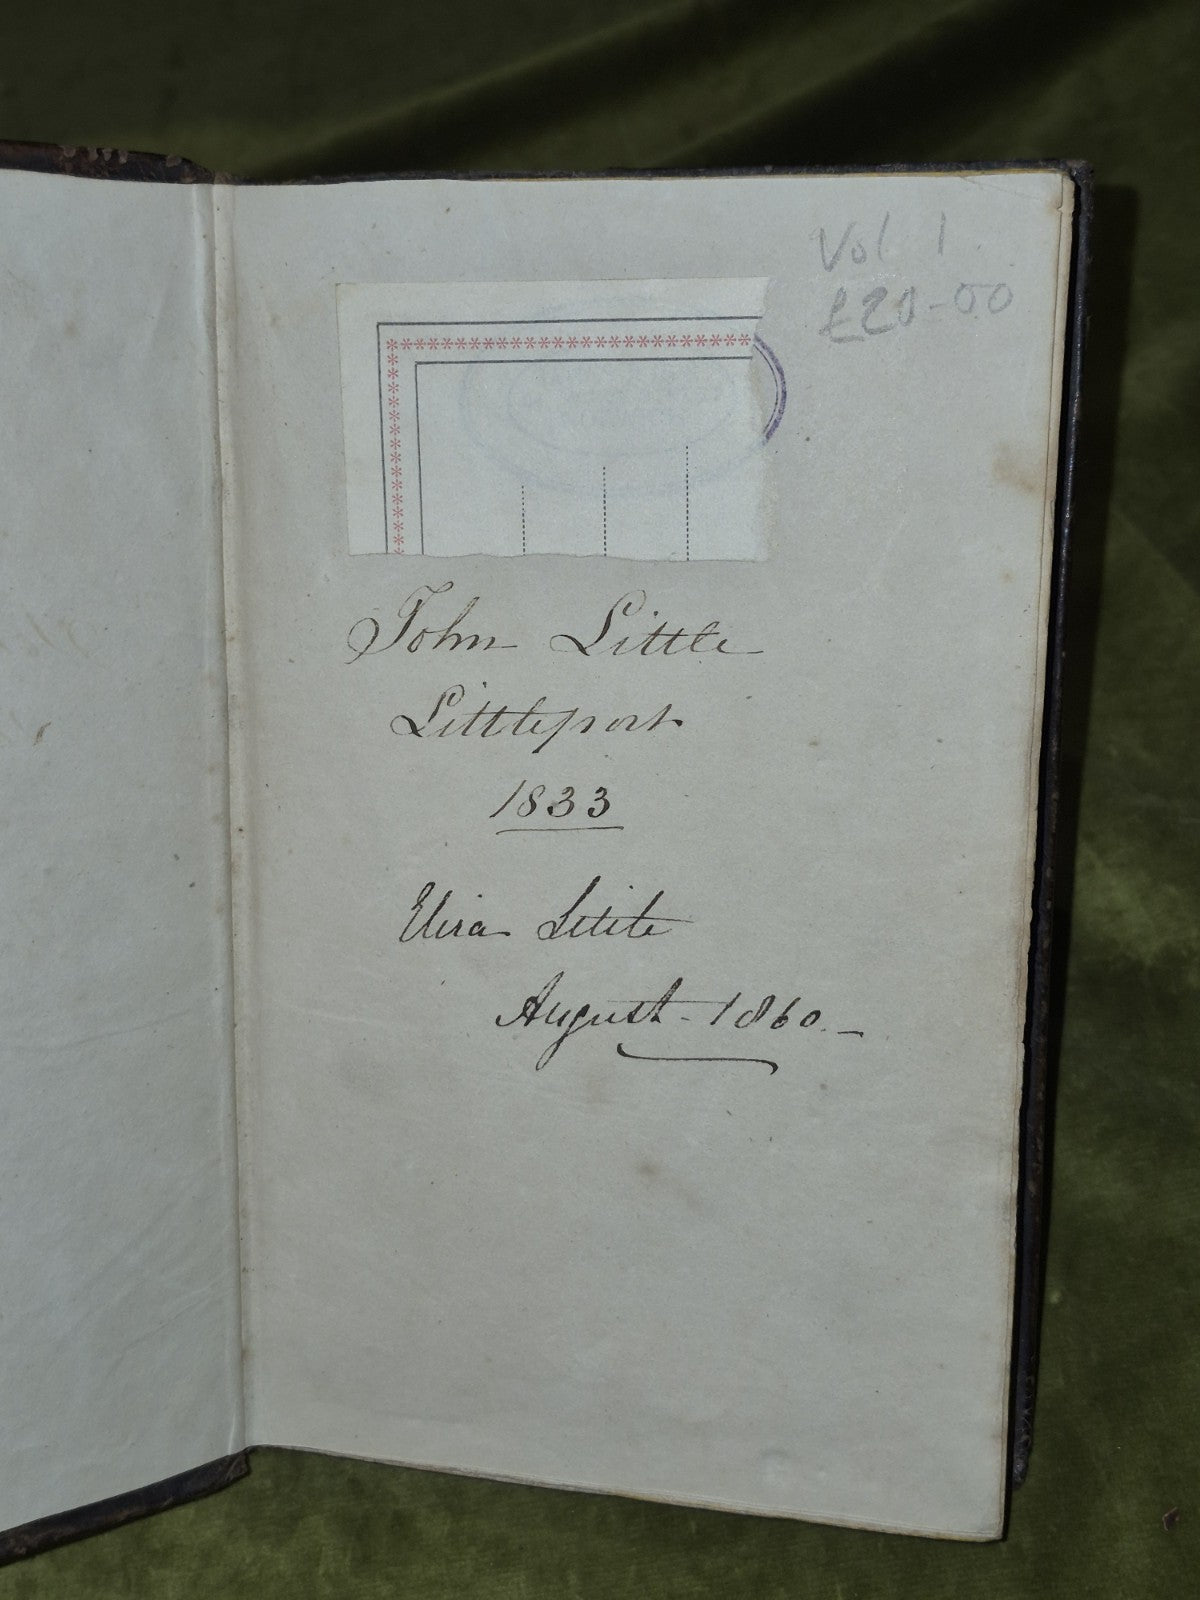 Vol 1
£20-00
John Little
Littleport
1833
Eliza Little
August - 1860.